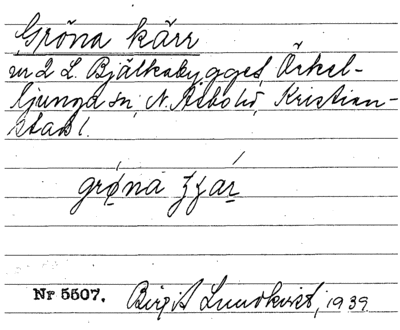 Gröna kärr
in 2 L. Bjälkabygget, Örkel-
ljunga sn, N. Åsbo hd, Kristian-
stads l.
Nr 5507. Birgit Lundkvist, 1939